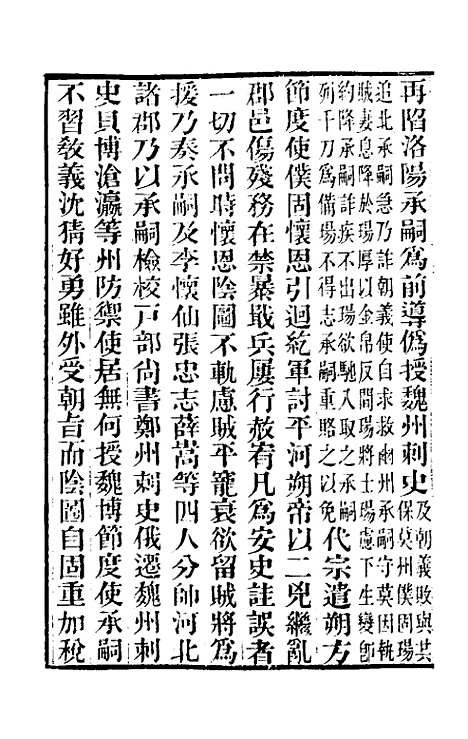 再陷洛陽承嗣爲前導僞授魏州刺史及朝義敗與其保莫州僕固瑒
追北承嗣急乃詐朝義使自求救幽州承嗣守莫因執
賊妻息降於瑒厚以金帛反間瑒將士瑒慮下生變卽
約降承嗣詐疾不出瑒欲馳入取之承嗣
列千刀爲備瑒不得志承嗣重賂之以免代宗遣朔方
節度使僕固懷恩引迴紇軍討平河朔帝以二兇繼亂
郡邑傷殘務在禁暴戢兵屢行赦宥凡爲安史詿誤者
一切不問時懷恩陰圖不軌慮賊平寵衰欲留賊將爲
援乃奏承嗣及李懷仙張忠志薛嵩等四人分帥河北
諸郡乃以承嗣檢校戸部尙書鄭州刺史俄遷魏州刺
史貝博滄瀛等州防禦使居無何授魏博節度使承嗣
不習敎義沈猜好勇雖外受朝旨而陰圖自固重加稅